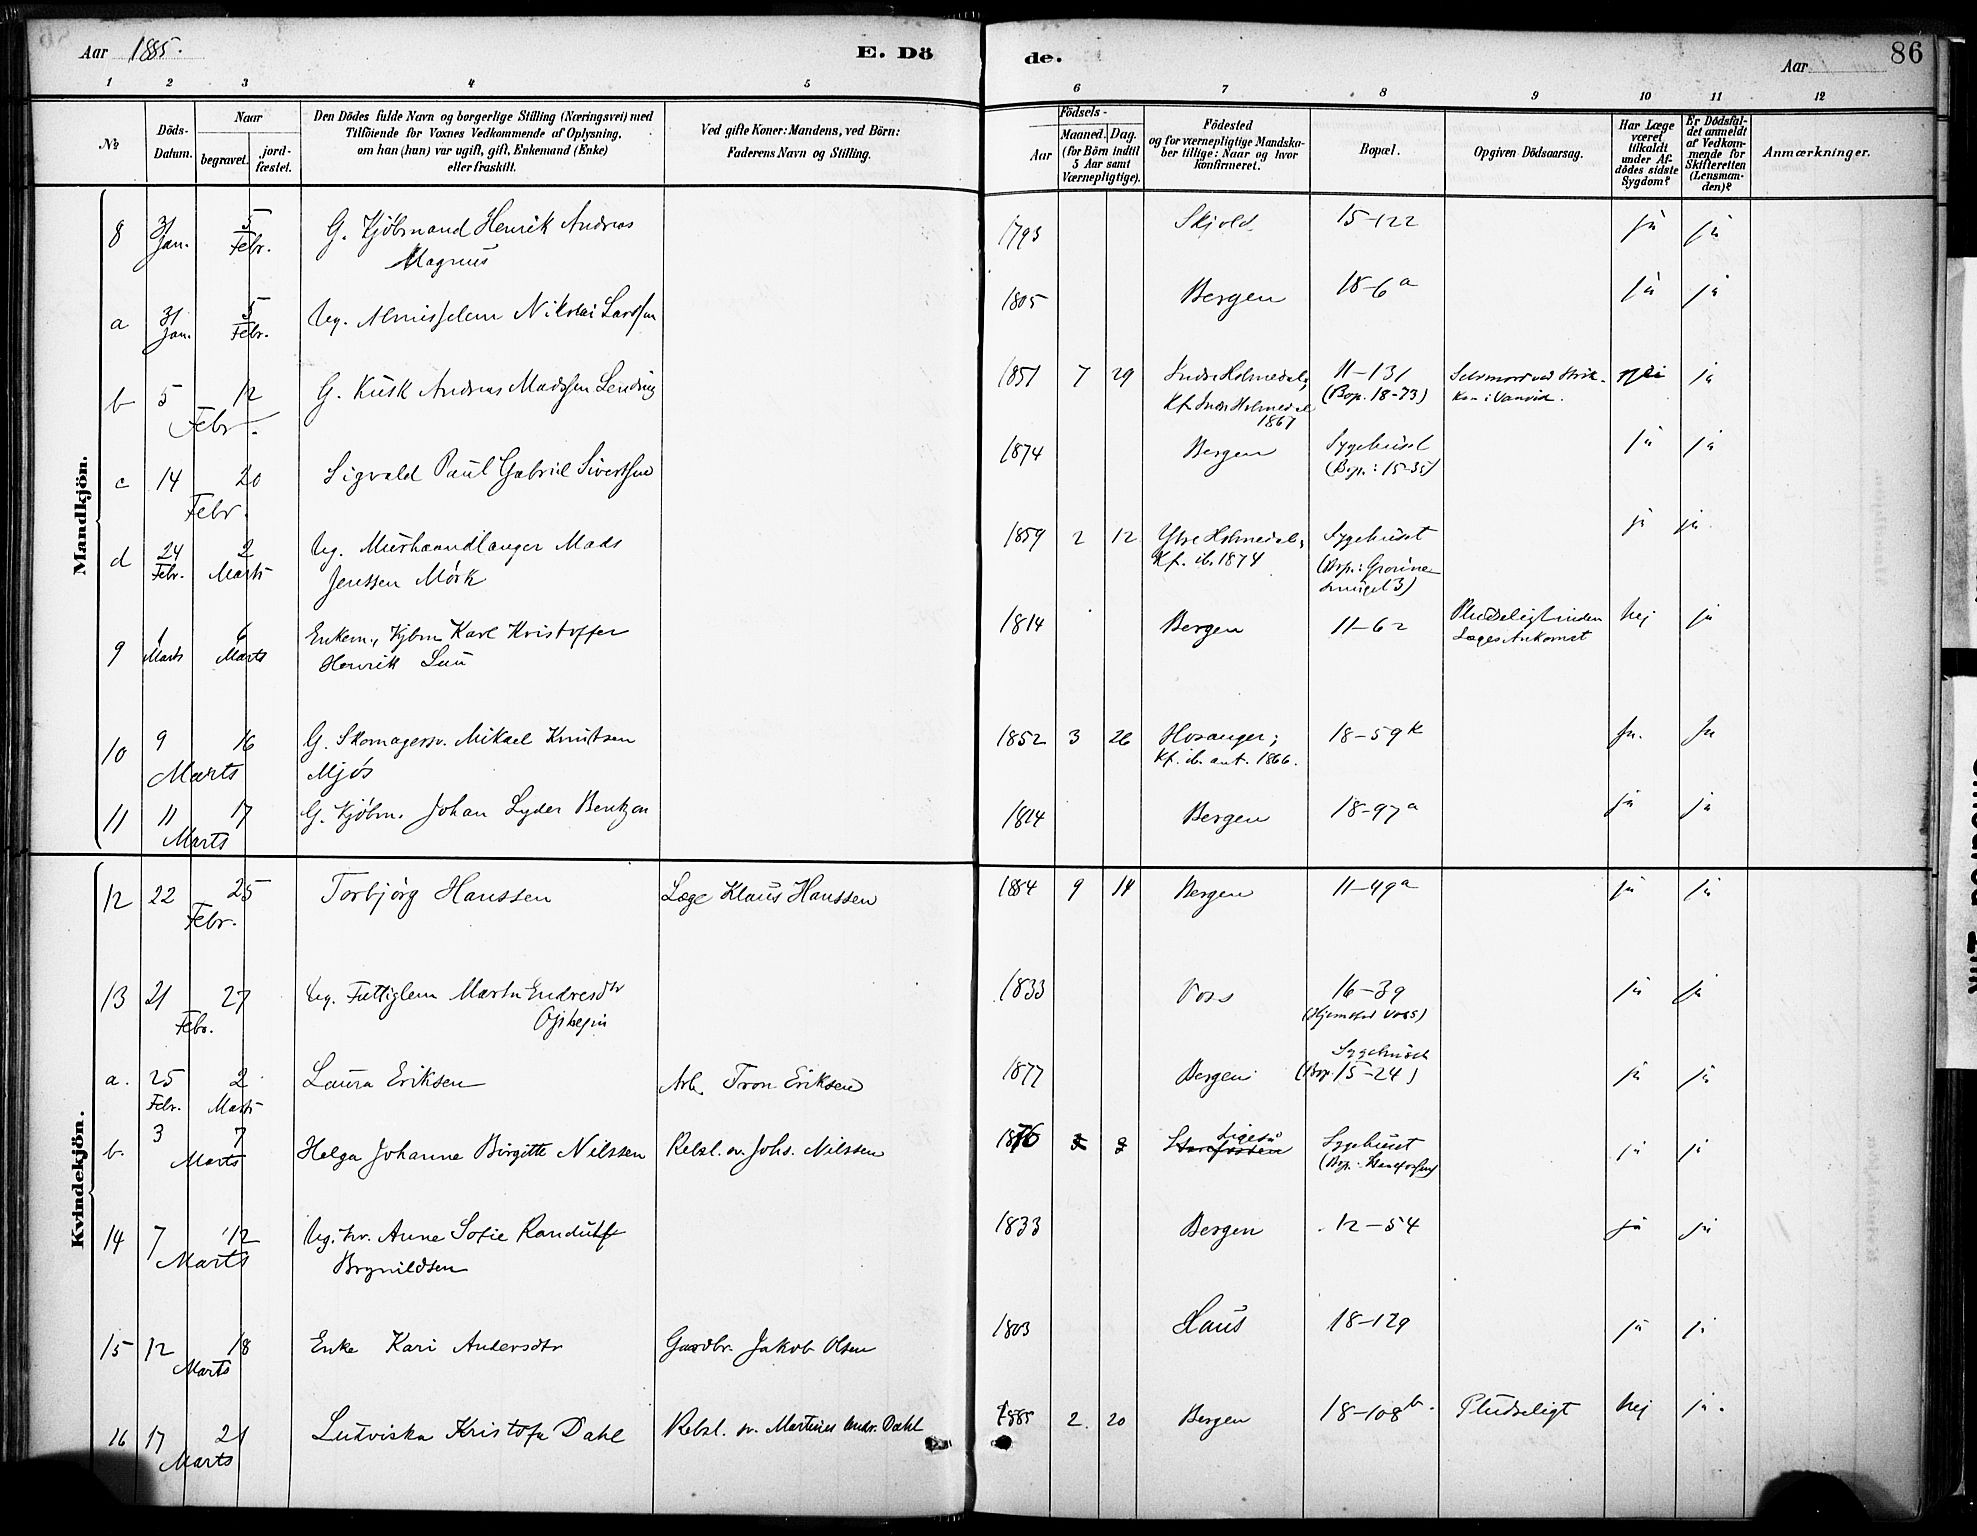 Aar 1885.
E. Dö
de.
Aar
86
1 2 3 4 5 6 7 8 9 10 11 12
№
Döds-
Datum.
Naar
begravet.
jord-
fæstet.
Den Dödes fulde Navn og borgerlige Stilling (Næringsvei) med
Tilföiende for Voxnes Vedkommende af Oplysning,
om han (hun) var ugift, gift, Enkemand (Enke)
eller fraskilt.
Ved gifte Koner: Mandens, ved Börn:
Faderens Navn og Stilling.
Födsels-
Aar
Maaned.
Dag.
(for Börn indtil
5 Aar samt
Værnepligtige).
Födested
og for værnepligtige Mandska-
ber tillige: Naar og hvor
konfirmeret.
Bopæl.
Opgiven Dödsaarsag.
Har Læge
været
tilkaldt
under Af-
dödes sidste
Sygdom?
Er Dödsfal-
det anmeldt
af Vedkom-
mende for
Skifteretten
(Lensman-
den)?
Anmærkninger.
Mandkjön.
8 31 Jan. 5 Febr. G. Kjöbmand Henrik Andreas
Magnus
1793 Skjold 15-122 ja ja
a 31 Jan. 5 Febr. Ug. Nikolai
1805 Bergen 18-6a ja ja
b 5 12 Febr. G. Kusk Andreas Madssen
1851 7 29 Indre Holmedal;
Kf. Indr. Holmedal
1867
11-131
(Bop. 18-73)
Selvmord ved
nei ja
c 14 20 Febr. Sigvald Paul Gabriel Sivertsen
1874 Bergen Sygehuset
(Bop.: 15-35)
ja ja
d 24 Febr. 2 Marts Ug. Murhaandlanger Mads
Jenssen Mörk
1859 2 12 Ytre Holmedal;
Kf. ib. 1874
Sygehuset
ja ja
9 1 Marts 6 Marts Enkem., Kjbm Karl Kristoffer
Henrik
1814 Bergen 11-62 Pludseligt inden
Læges Ankomst
nej ja
10 9 16 Marts G. Skomagersv. Mikael Knutsen
Mjös
1852 3 26 Hosanger;
Kf. ib. ant. 1866.
18-59k ja. ja
11 11 17 Marts G. Kjöbm. Johan Lyder Bentzon
1814 Bergen 18-97a ja ja
Kvindekjön.
12 22 25 Febr. Torbjörg Hanssen Læge Klaus Hanssen
1884 9 14 Bergen 11-49a ja ja
13 21 27 Febr. Ug. Fattiglem Marta Endresdtr
1833 Voss 16-39
(Hjemsted Voss)
ja ja
a. 25 Febr. 2 Marts Laura Eriksen Arb. Tron Eriksen
1877 Bergen Sygehuset
(Bop. 15-24)
ja ja
b. 3 7 Marts Helga Johanne Birgitte Nilssen Rebsl. sv. Johs. Nilssen
1876 Sygehuset
ja ja
14 7 12 Marts Ug. hv. Anne Sofie
Brynildsen
1833 Bergen 12-54 ja ja
15 12 18 Marts Enke Kari Andersdtr Gaardbr. Jakob Olsen
1803 Haus 18-129 ja ja
16 17 21 Marts Lutviska Kristofa Dahl Rebsl. sv. Martinus Andr. Dahl
1885 2. 20 Bergen 18-108b. Pludseligt nej ja.